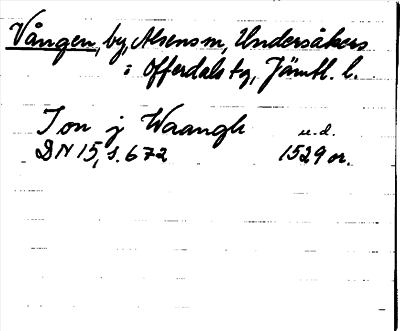 Vången, by, Alsens sn, Undersåkers
i Offerdals tg, Jämtl. l.
Jon j Waangh u.d.
DN 15, s. 672 1529 or.